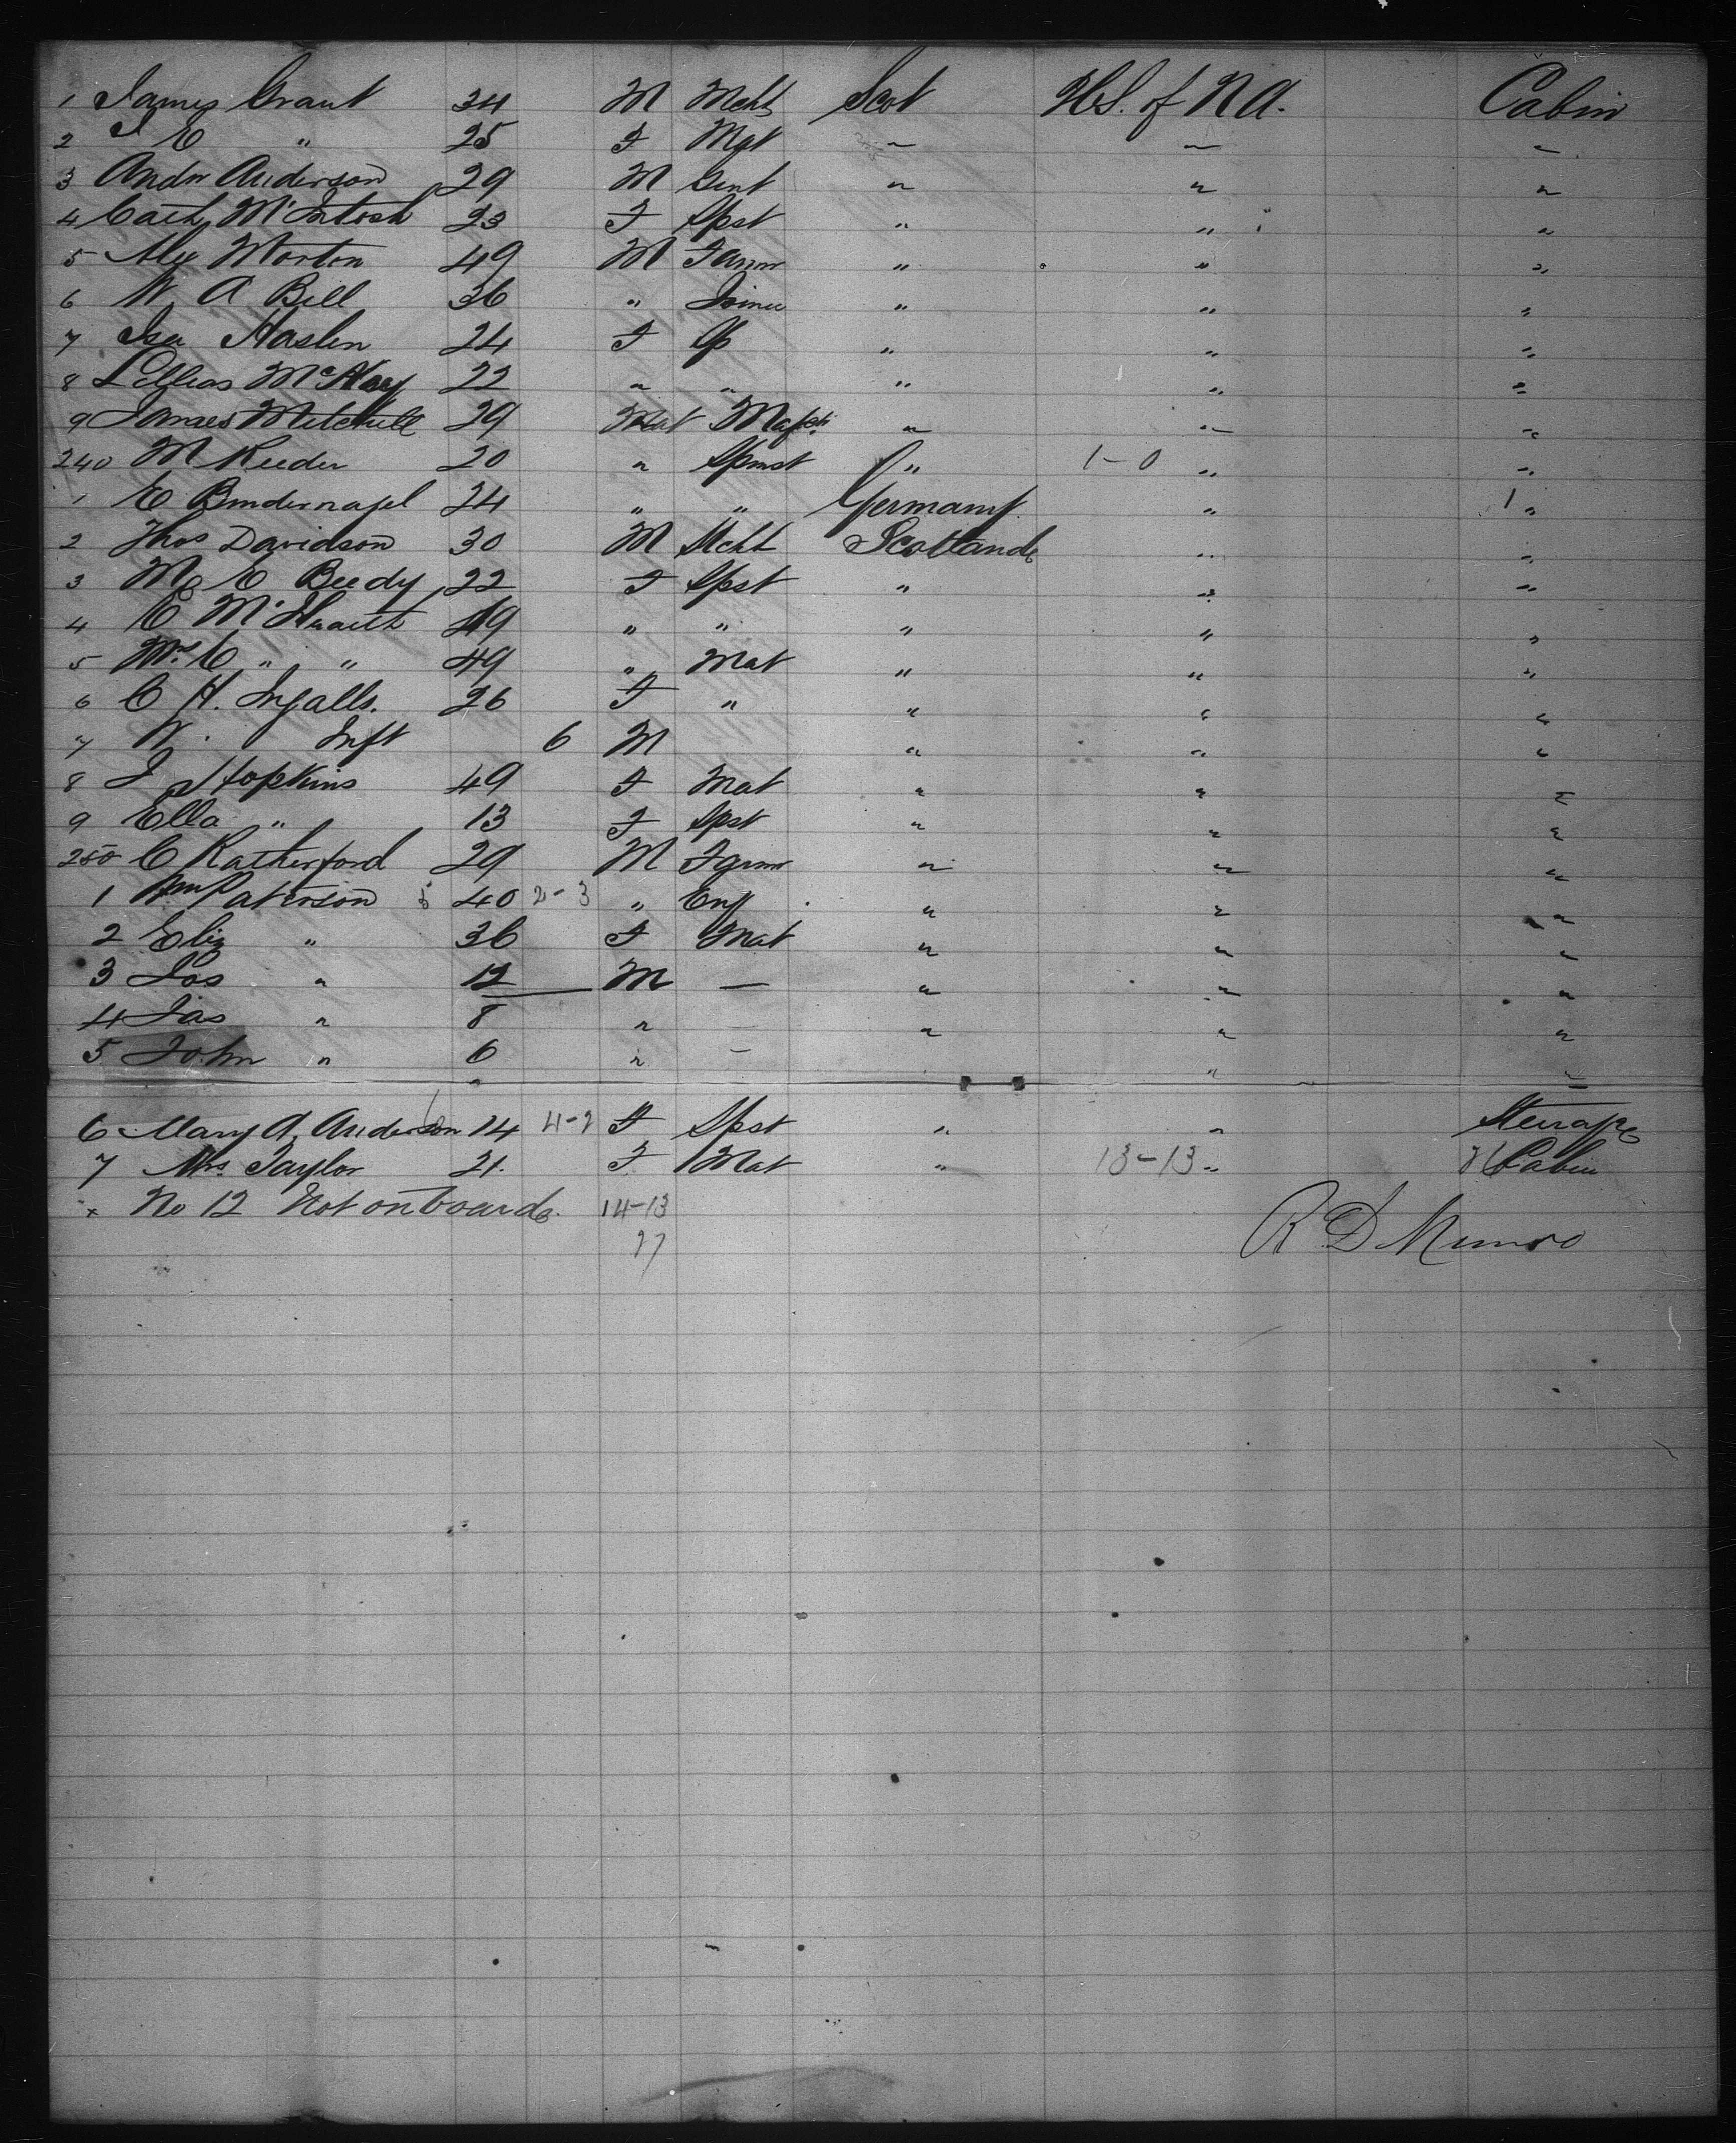 1 James Grant 34 M Mcht Scot U.S. of N A. Cabin
2 J E " 25 F Mat " " "
3 Andw Anderson 29 M Gent " " "
4 Cath McIntosh 23 F Spst " " "
5 Alex Morton 49 M Farmr " " "
6 W. A Bell 36 " Joiner " " "
7 Isa Haslen 24 F Sp " " "
8 Lillias McKay 22 " " " " "
9 James Mitchell 29 " " "
240 M Reeder 20 " Spinst " 1-0 " "
1 E Bendernagel 24 " " Germany " 1 "
2 Thos Davidson 30 M Mcht Scotland " "
3 M E Beedy 22 F Spst " " "
4 E 19 " " " " "
5 Mrs C " " 49 " Mat " " "
6 C H. Ingalls. 26 F " " " "
7 W. Inft 6 M " " "
8 J Hopkins 49 F Mat " " "
9 Ella " 13 F Spst " " "
250 C Rutherford 29 M Farmr " " "
1 Wm Paterson 40 2-3 " Eng " " "
2 Eliz " 36 F Mat " " "
3 Jos " 12 M — " " "
4 Jas " 8 " — " " "
5 John " 6 " — " "
6 Mary A. Anderson 14 4-2 F Spst " " Steerage
7 Mrs Taylor 21. F Mat " 13-13 " Cabin
x No 12 Not on board. 14-13
27
R D Munro